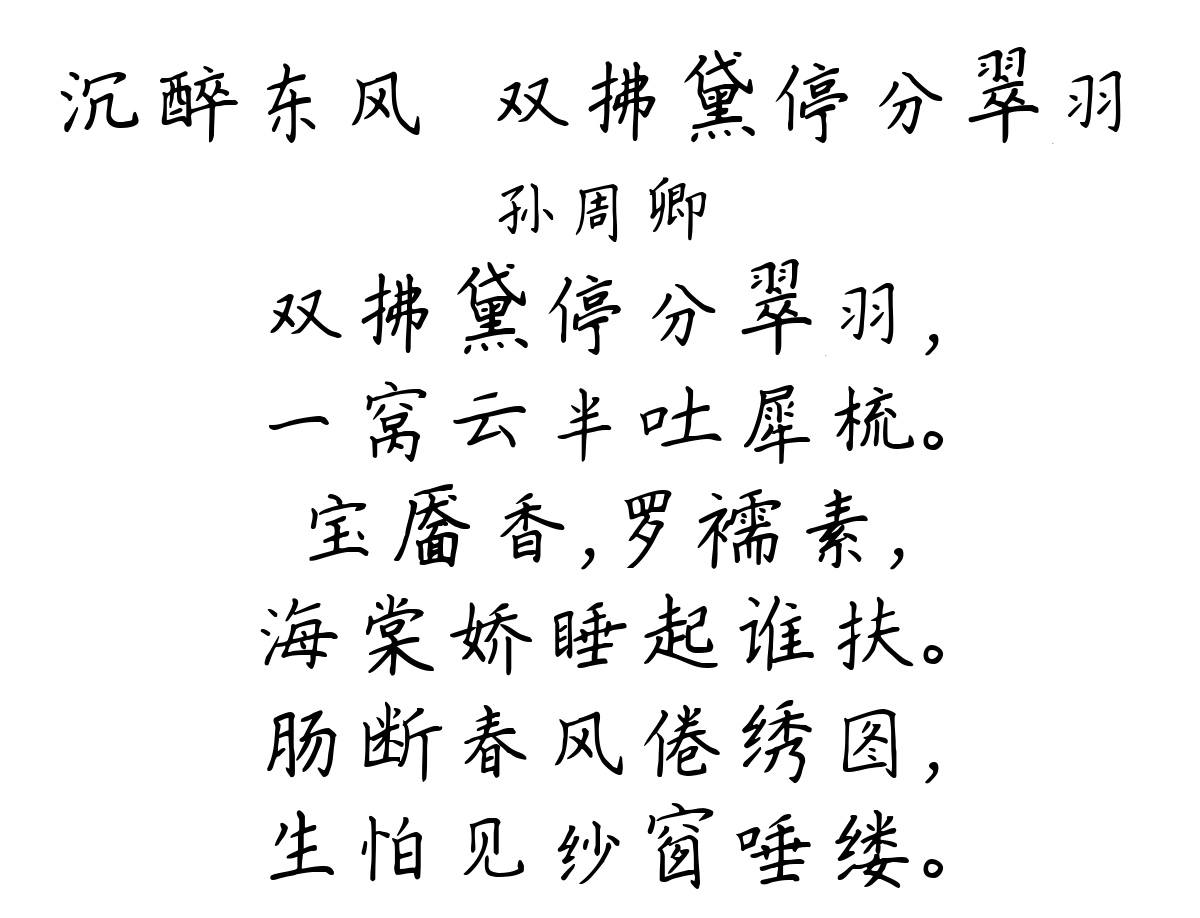 沉醉东风 双拂黛停分翠羽
孙周卿
双拂黛停分翠羽，
一窝云半吐犀梳。
宝靥香，罗襦素，
海棠娇睡起谁扶。
肠断春风倦绣图，
生怕见纱窗唾缕。